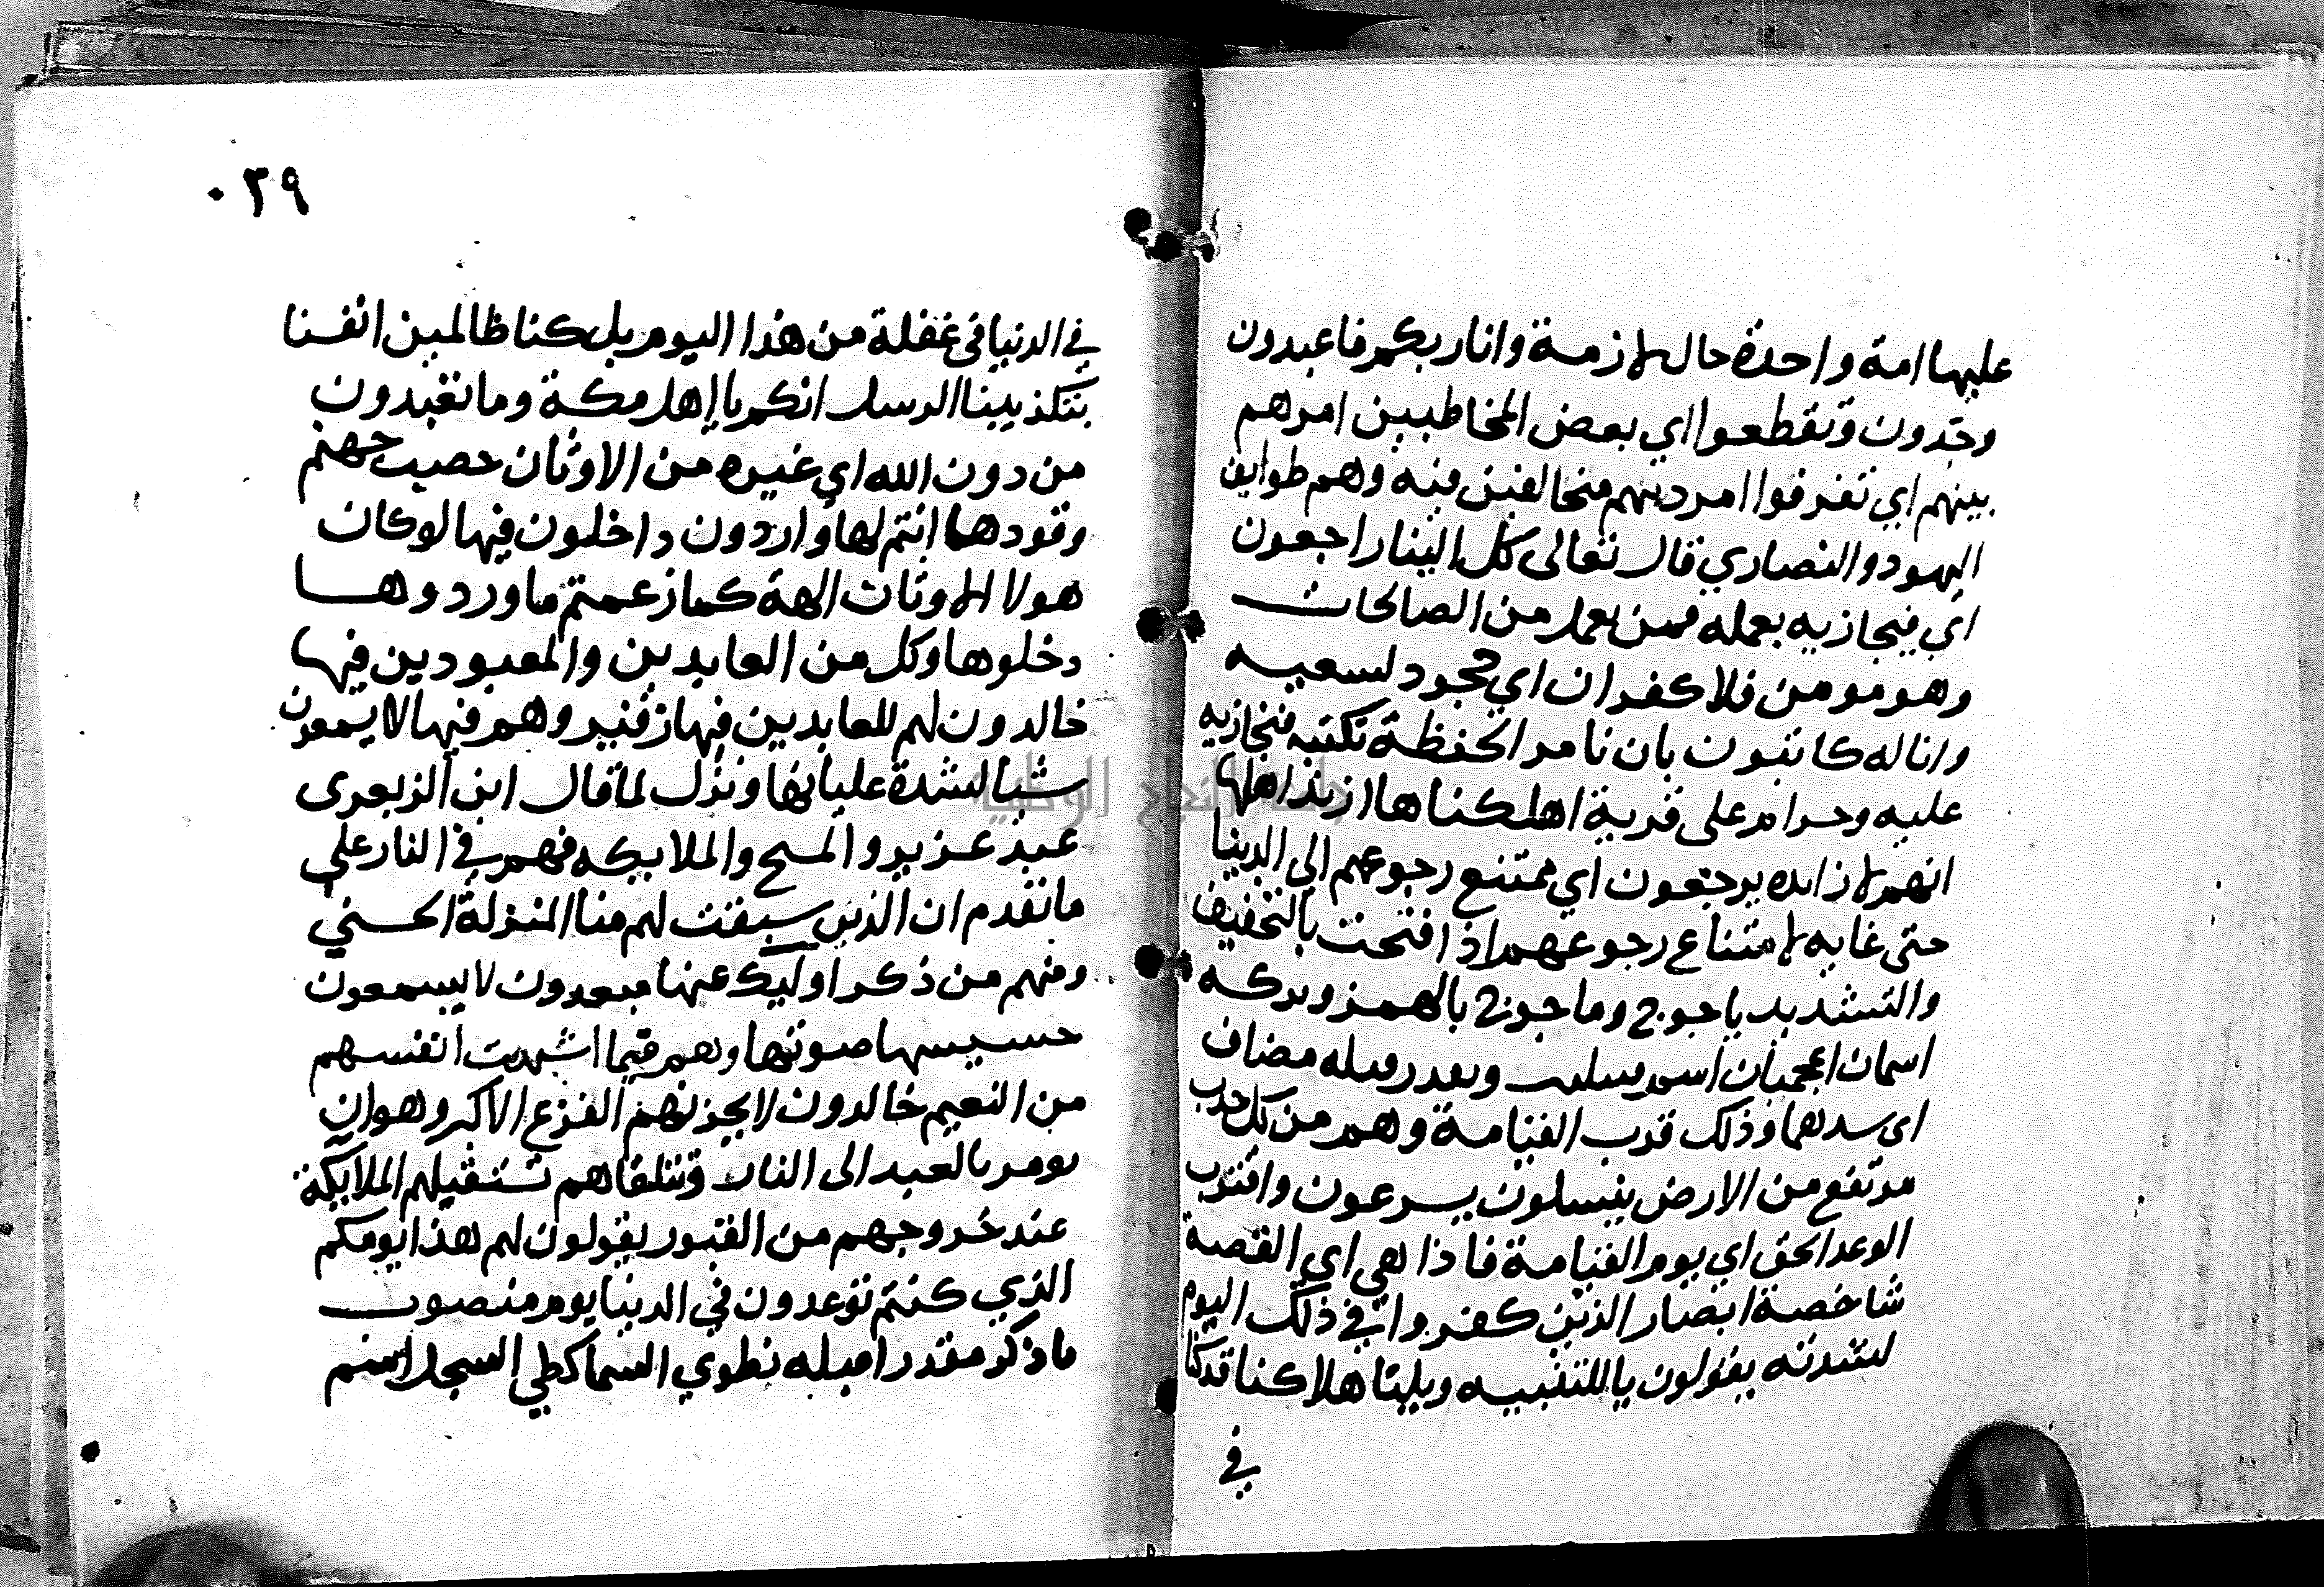 عليها امة واحدة حال لازمة وانا ربكم فاعبدون
وحدون وتقطعوا اي بعض المخاطبين امرهم
بينهم اي تفرقوا امر دينهم متخالفين فيه وهم طوايف
اليهود والنصاري قال تعالى كل الينا راجعون
اي فيجازيه بعمله فمن يعمل من الصالحات
وهو مومن فلا كفران اي جحود لسعيه
وانا له كاتبون بان نامر الحفظة تكتبه فنجازيه
عليه وحرام على قرية اهلكناها اريد اهلها
انهم لا زايده يرجعون اي ممتنع رجوعهم الى الدنيا
حتى غايه لامتناع رجوعهم اذا فتحت بالتخفيف
والتشديد ياجوج وماجوج بالهمز وتركه
اسمان اعجميان اسم قبيلتين ويقدر قبله مضاف
اى سدهما وذلك قرب القيامة وهم من كل حدب
مرتفع من الارض ينسلون يسرعون واقترب
الوعد الحق اي يوم القيامة فاذا هي اي القصة
شاخصة ابصار الذين كفروا في ذلك اليوم
لشدته يقولون يا للتنبيه ويلينا هلاكنا قد كنا
في
٠٢٩
في الدنيا في غفلة من هذا اليوم بل كنا ظالمين انفسنا
بتكذيبنا الرسل انكم يا اهل مكة وما تعبدون
من دون الله اي غيره من الاوثان حصب جهنم
وقودها انتم لها واردون داخلون فيها لو كان
هولا الاوثان الهة كما زعمتم ما وردوها
دخلوها وكل من العابدين والمعبودين فيها
خالدون لهم للعابدين فيها زفير وهم فيها لا يسمعون
شيا لشدة غليانها ونزل لما قال ابن الزبعرى
عبد عزير والمسيح والملايكه فهم في النار على
ما تقدم ان الذين سبقت لهم منا المنزلة الحسني
ومنهم من ذكر اوليك عنها مبعدون لا يسمعون
حسيسها صوتها وهم فيما اشتهت انفسهم
من النعيم خالدون لا يحزنهم الفزع الاكبر وهو ان
يومر بالعبد الى النار وتتلقاهم تستقبلهم الملايكة
عند خروجهم من القبور يقولون لهم هذا يومكم
الذي كنتم توعدون في الدنيا يوم منصوب
باذكر مقدرا قبله نطوي السما كطي السجل اسم